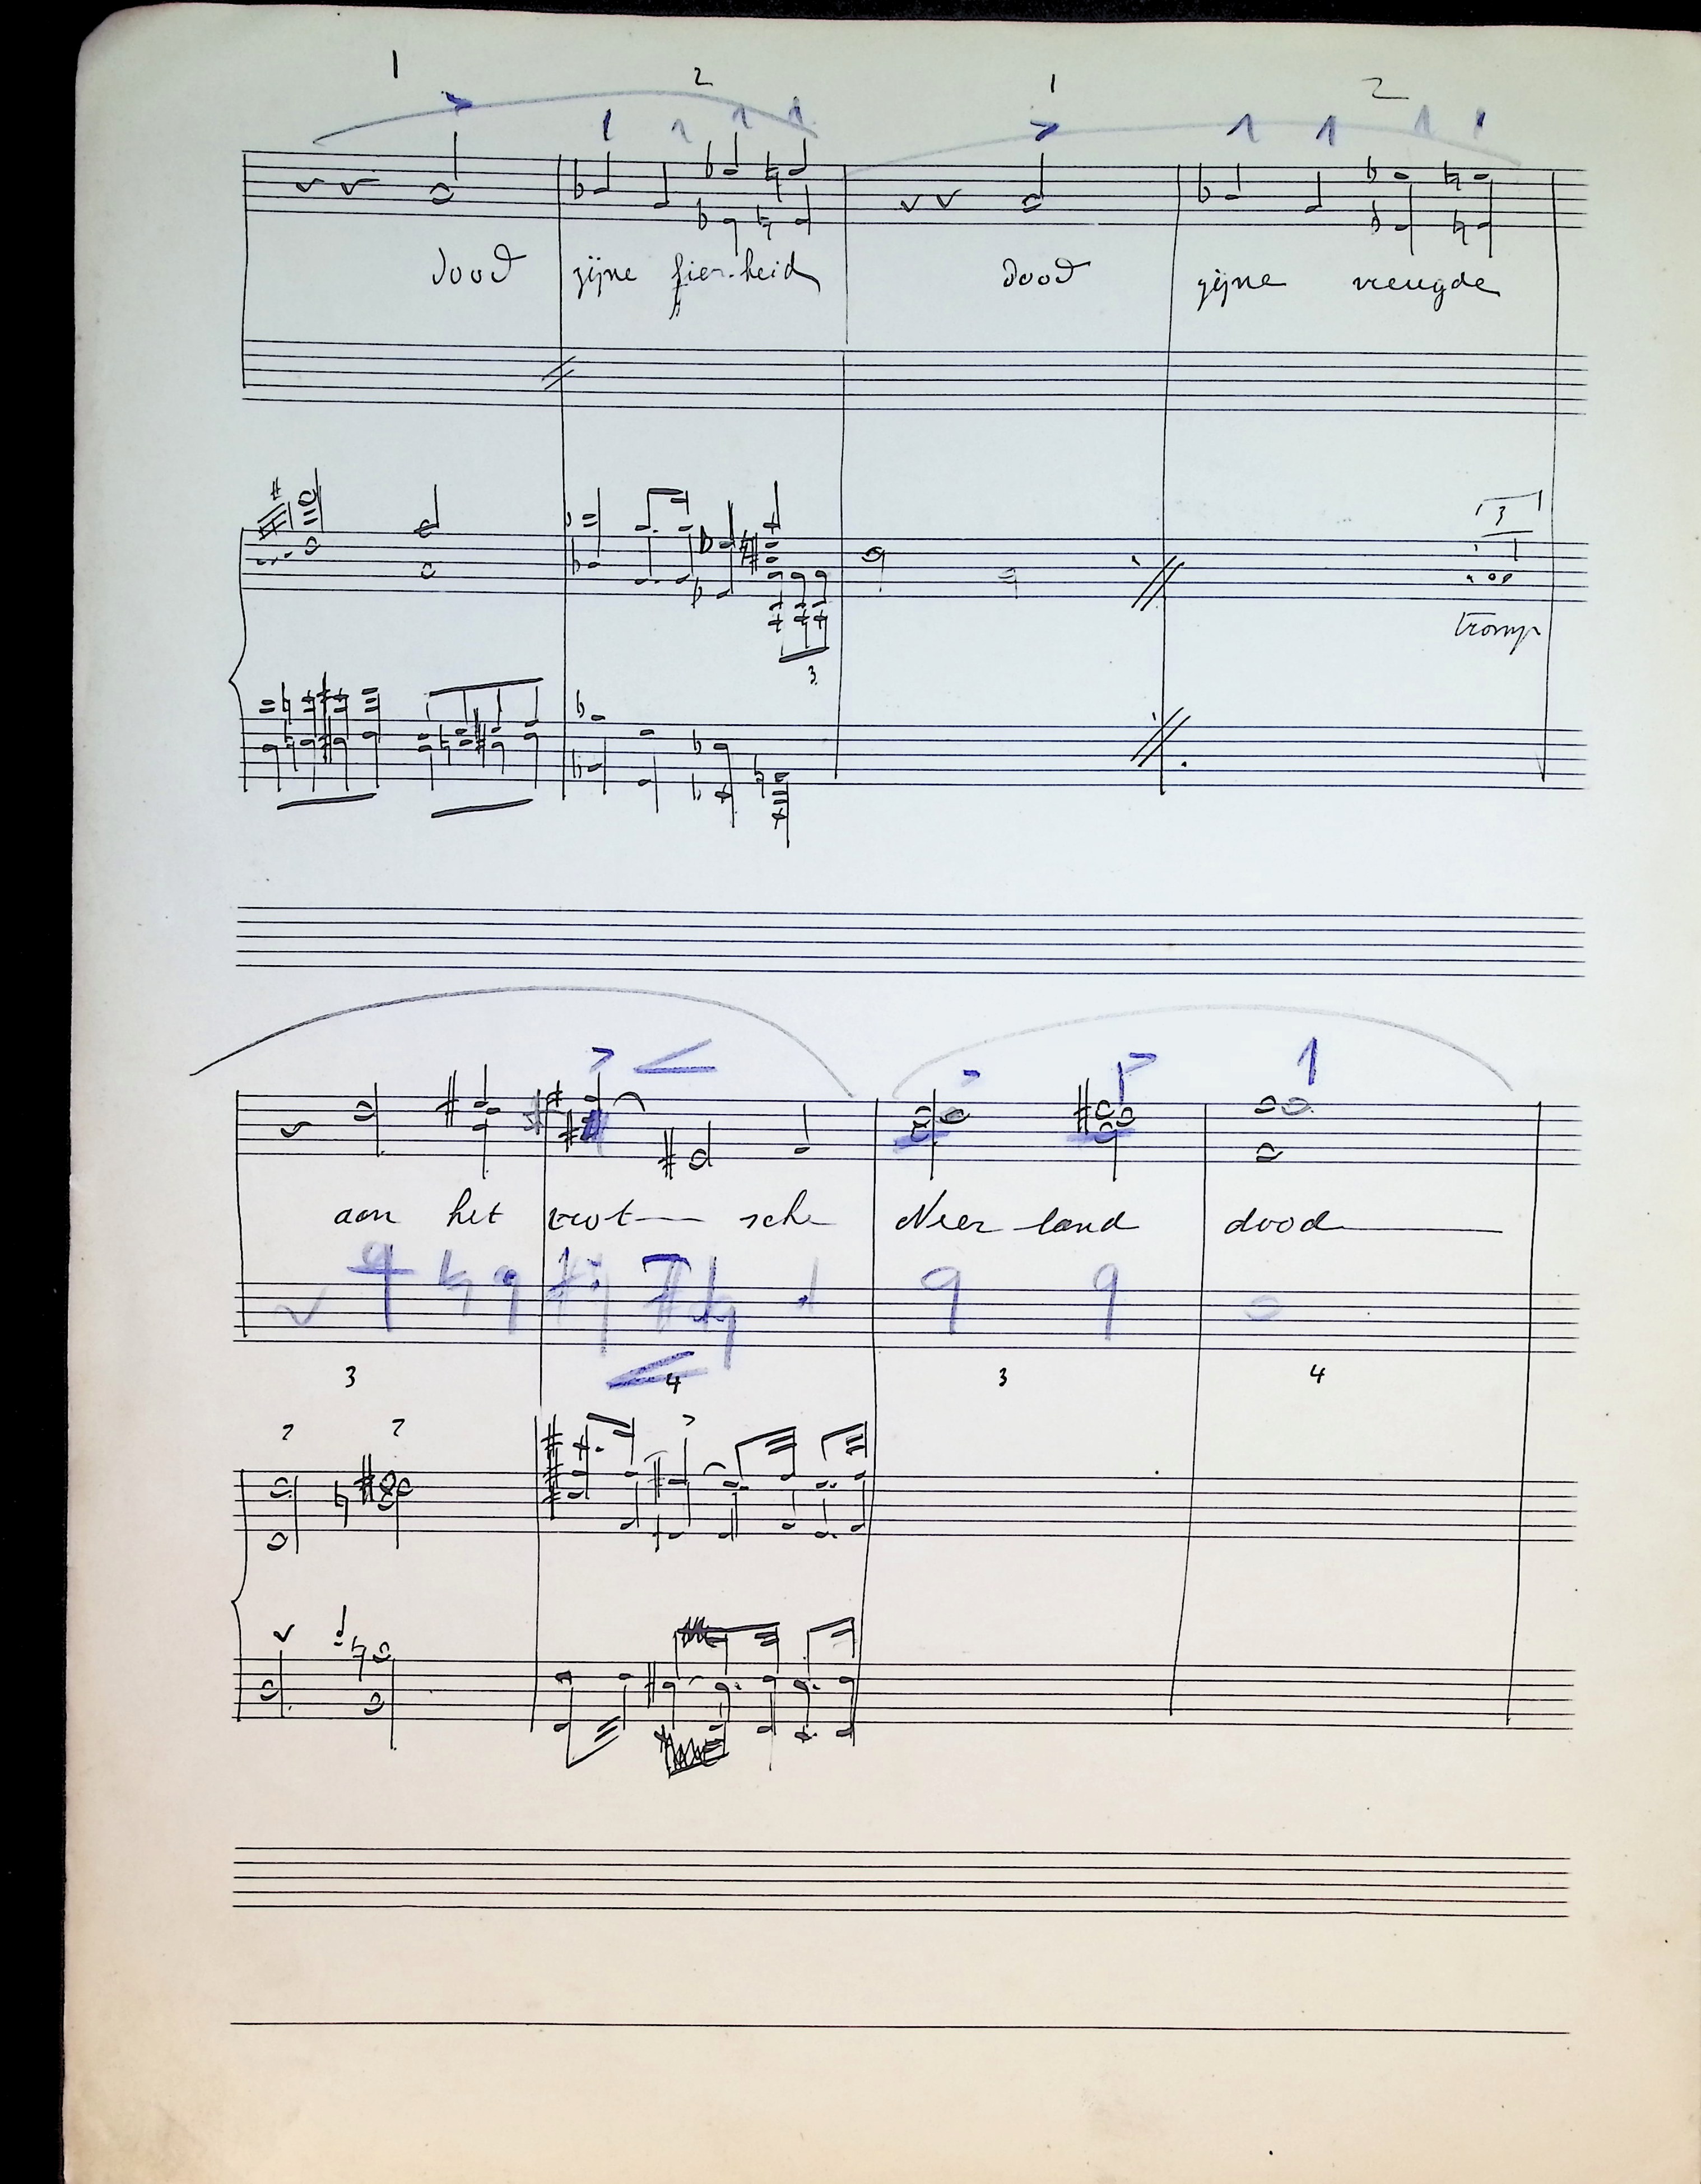 1 2 1 2
dood zijne fier-heid dood zijne vreugde
3
tromp
3
aan het trot— sche Neer-land dood
3 4 3 4